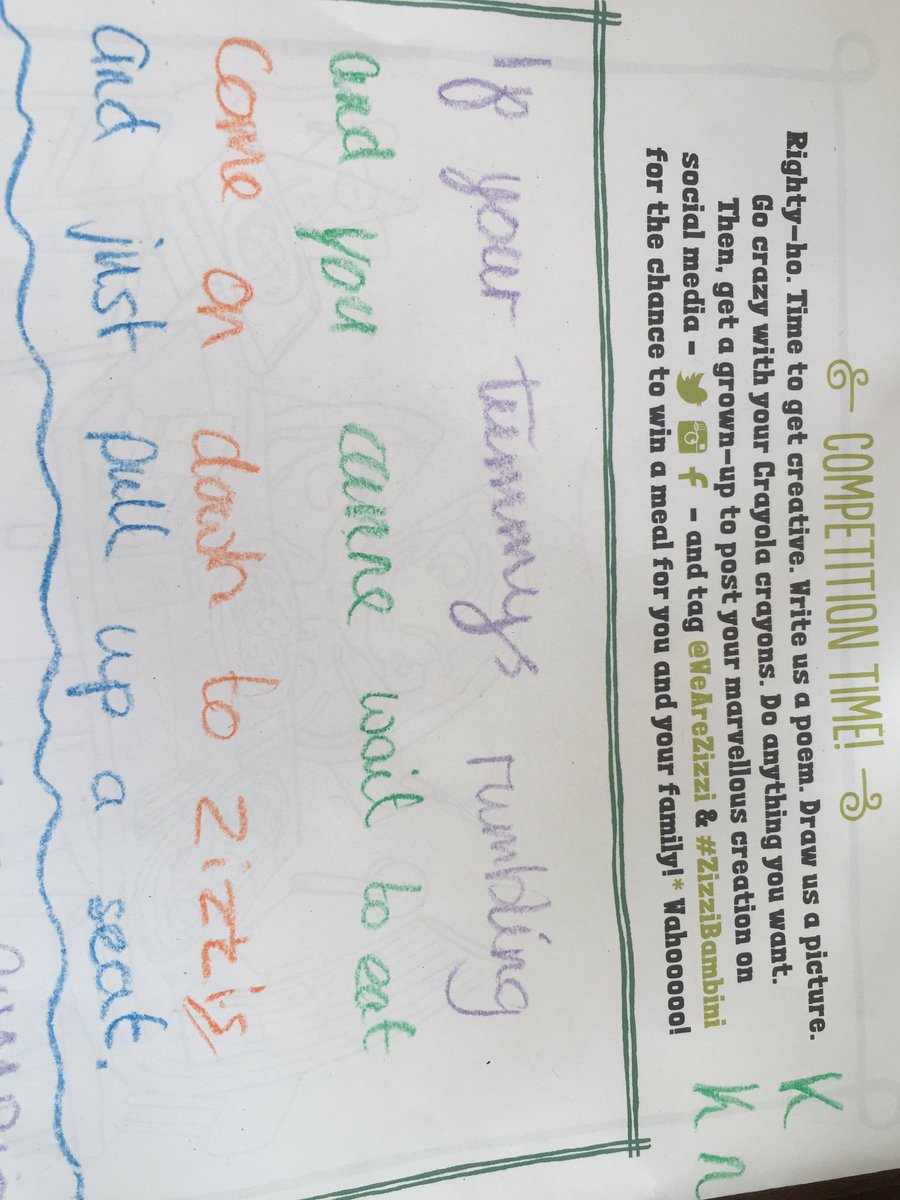 COMPETITION TIME!
Righty-ho. Time to get creative. Write us a poem. Draw us a picture.
Go crazy with your Crayola crayons. Do anything you want.
Then, get a grown-up to post your marvellous creation on
social media - f - and tag @WeAreZizzi & #ZizziBambini
for the chance to win a meal for you and your family!* Wahooooo!
K
h n
If your tummys rumbling
and you canne wait to eat
Come on down to Zizzis
and just pull up a seat.